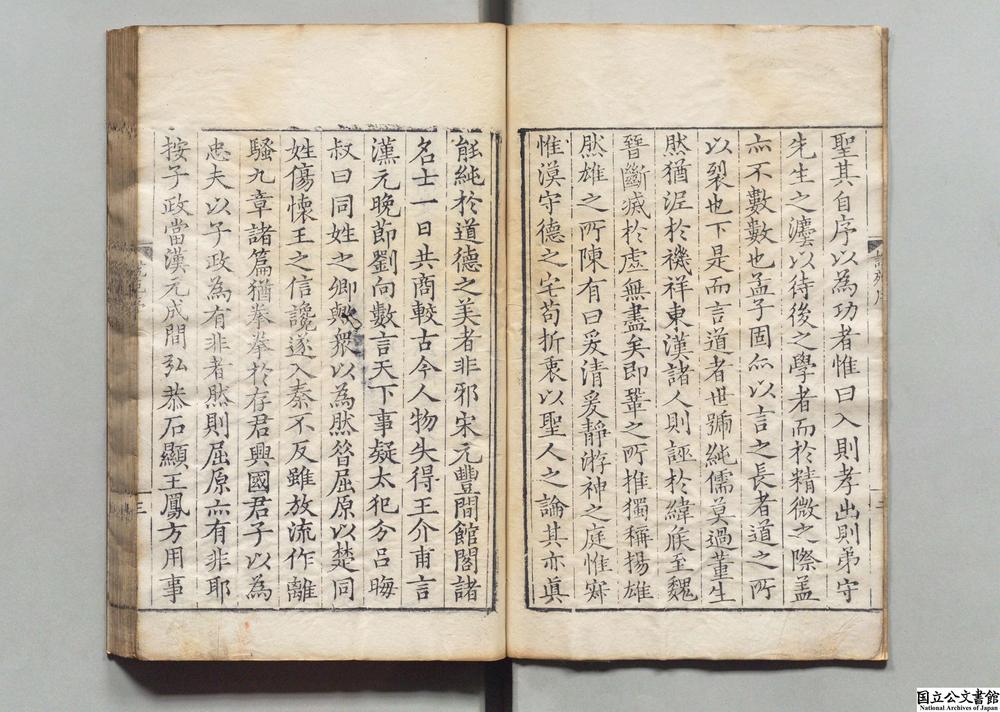 聖其自序以為功者惟曰入則孝出則弟守
先生之灋以待後之學者而於精微之際葢
亦不數數也孟子固亦以言之長者道之所
以裂也下是而言道者世號純儒莫過董生
然猶泥於禨祥東漢諸人則誣於緯候至魏
晉斷滅於虛無盡矣即鞏之所推獨稱揚雄
然雄之所陳有曰爰清爰靜游神之庭惟寂
惟漠守德之宅苟折衷以聖人之論其亦眞
能純於道德之美者非邪宋元豐間館閣諸
名士一日共商較古今人物失得王介甫言
漢元晚節劉向數言天下事疑太犯分呂晦
叔曰同姓之卿歟衆以為然昝屈原以楚同
姓傷懷王之信讒遂入秦不反雖放流作離
騷九章諸篇猶拳拳於存君興國君子以為
忠夫以子政為有非者然則屈原亦有非耶
按子政當漢元成間弘恭石顯王鳳方用事
三
三
国立公文書館
National Archives of Japan